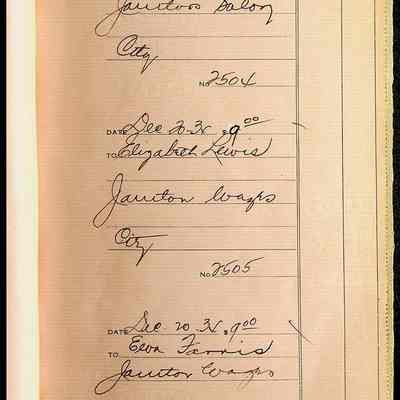 Janitors Salary
City
No 2504
DATE Dec 20-32, 9.00
TO Elizabeth Lewis
Janitor Wages
City
No 2505
DATE Dec 20 32, 9.00
TO Eva Farris
Janitor Wages